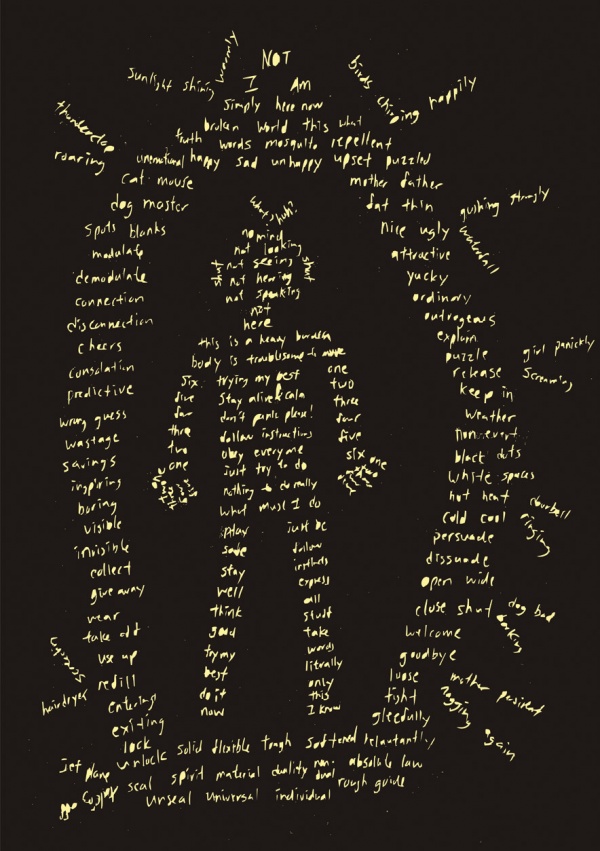 NOT
I Am
simply here now
broken world this what
truth words mosquito repellent
unemotional happy sad unhappy upset puzzled
sunlight shining warmly
birds chirping happily
thunderclap roaring
cat mouse
dog master
spots blanks
modulate
demodulate
connection
disconnection
cheers
consolation
predictive
wrong guess
wastage
savings
inspiring
boring
visible
invisible
collect
give away
wear
take off
use up
refill
entering
exiting
lock
unlock
hairdryer
what's huh?
no mind
not looking
shut not seeing shut
shut not hearing shut
not speaking
not
here
this is a heavy burden
body is troublesome to move
trying my best
stay alive
don't panic please!
follow instructions
obey everyone
just try to do
nothing to do really
what must I do
six
five
four
three
two
one
one
two
three
four
five
six one
play
safe
stay
well
think
good
try my
best
do it
now
just be
follow
instincts
express
all
stuff
take
words
literally
only
this
I know
mother father
fat thin
nice ugly
attractive
yucky
ordinary
outrageous
explain
puzzle
release
keep in
weather
non-event
black dots
white spaces
hot heat
cold cool
persuade
dissuade
open wide
close shut
welcome
goodbye
loose
tight
gleefully
gushing strongly
waterfall
girl panickly
screaming
doorbell
ringing
dog bad
barking
mother persistent
nagging again
solid flexible tough softened reluctantly
seal spirit material duality non-dual absolute law
unseal universal individual rough guide
jet plane taking off